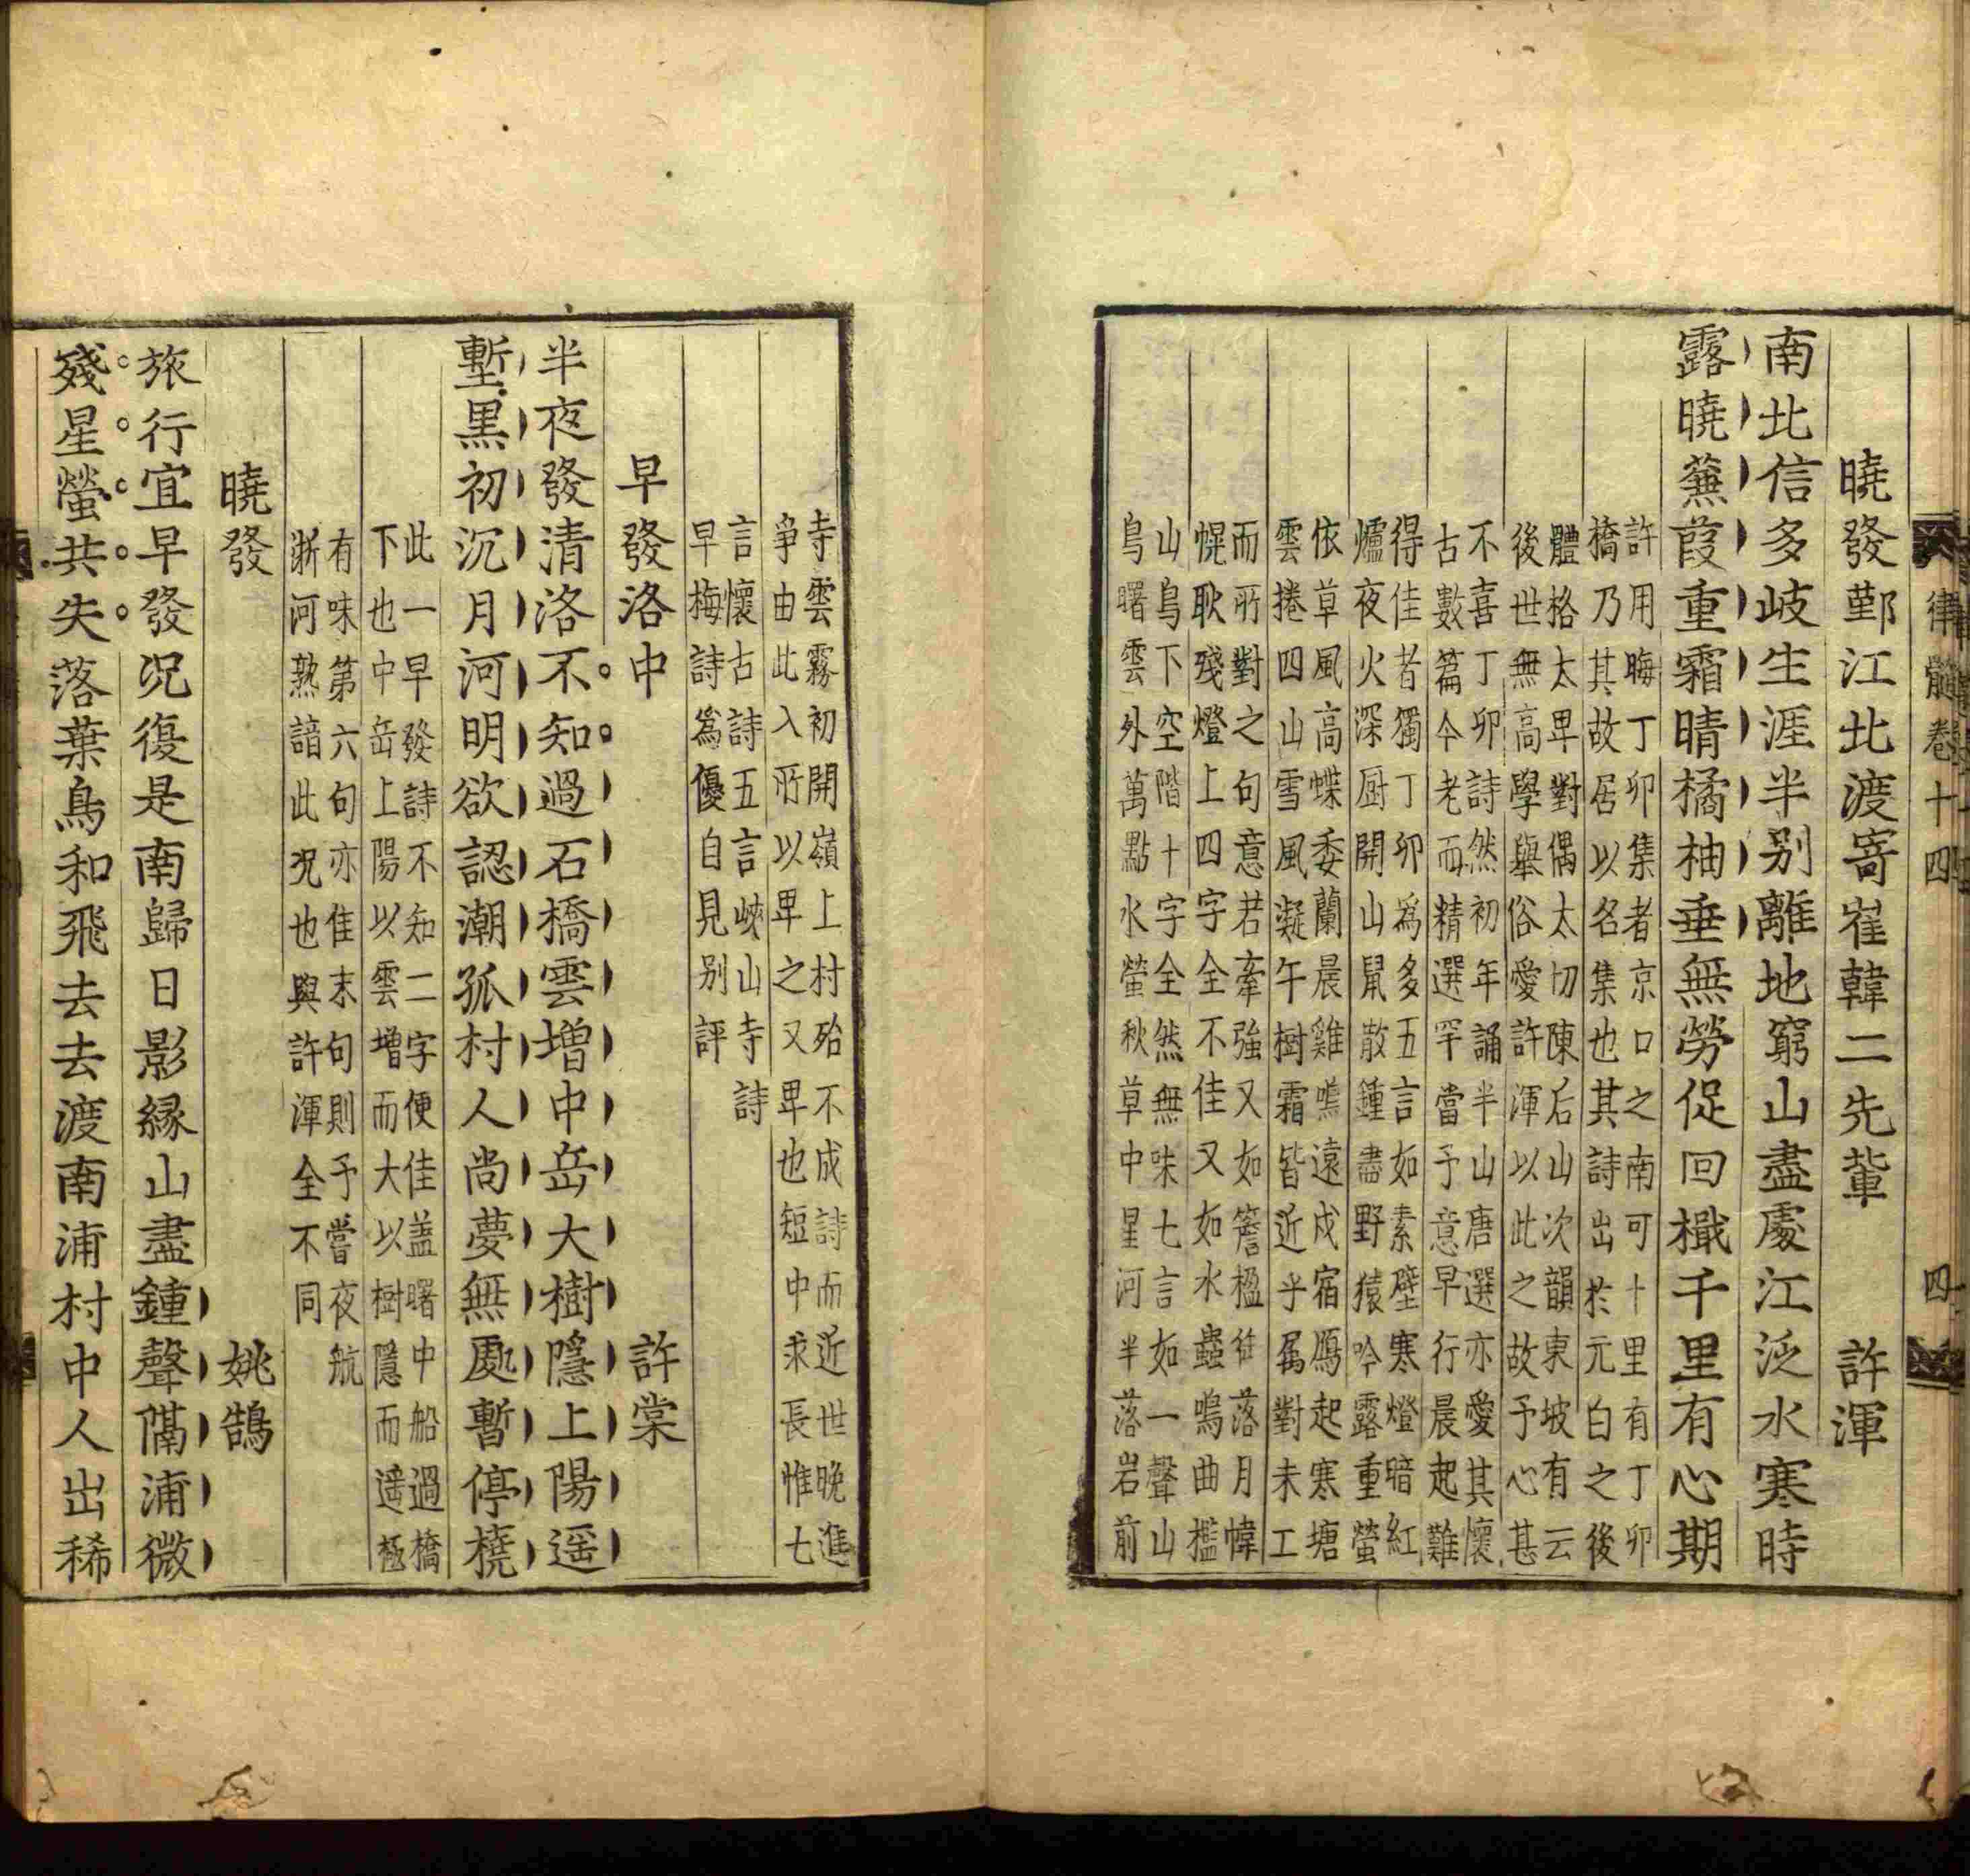 律髓卷十四
四
曉發鄞江北渡寄崔韓二先輩 許渾
南北信多岐生涯半别離地窮山盡處江泛水寒時
露曉蒹葭重霜晴橘柚垂無勞促回檝千里有心期
許用晦丁卯集者京口之南可十里有丁卯
橋乃其故居以名集也其詩出於元白之後
體格太卑對偶太切陳后山次韻東坡有云
後世無高學舉俗愛許渾以此之故予心甚
不喜丁卯詩然初年誦半山唐選亦愛其懷
古數篇今老而精選罕當予意早行晨起難
得佳者獨丁卯爲多五言如素壁寒燈暗紅
爐夜火深厨開山鼠散鍾盡野猿吟露重螢
依草風高蝶委蘭晨雞鳴遠戍宿鴈起寒塘
雲捲四山雪風凝午樹霜皆近乎属對未工
而所對之句意若牽強又如簷楹落月幃
幌耿殘燈上四字全不佳又如水蟲鳴曲檻
山鳥下空階十字全然無味七言如一聲山
鳥曙雲外萬點水螢秋草中星河半落岩前
寺雲霧初開嶺上村殆不成詩而近世晚進
爭由此入所以卑之又卑也短中求長惟七
言懷古詩五言峽山寺詩
早梅詩爲優自見别評
早發洛中 許棠
半夜發清洛不知過石橋雲增中岳大樹隱上陽遥
塹黒初沉月河明欲認潮孤村人尚夢無處暫停橈
此一早發詩不知二字便佳盖曙中船過橋
下也中岳上陽以雲增而大以樹隱而遥極
有味第六句亦佳末句則予嘗夜航
浙河熟諳此况也與許渾全不同
曉發 姚鵠
旅行宜早發况復是南歸日影緣山盡鍾聲隔浦微
殘星螢共失落葉鳥和飛去去渡南浦村中人出稀